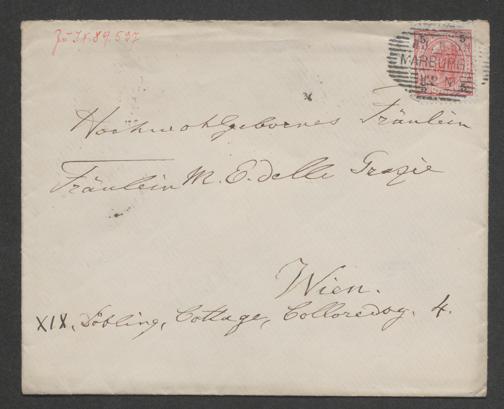 Zu I.N. 89.537
5 5
MARBURG
Hochwohlgebornes Fräulein
Fräulein M. E. delle Grazie
Wien.
XIX, Döbling, Cottage, Colloredog. 4.